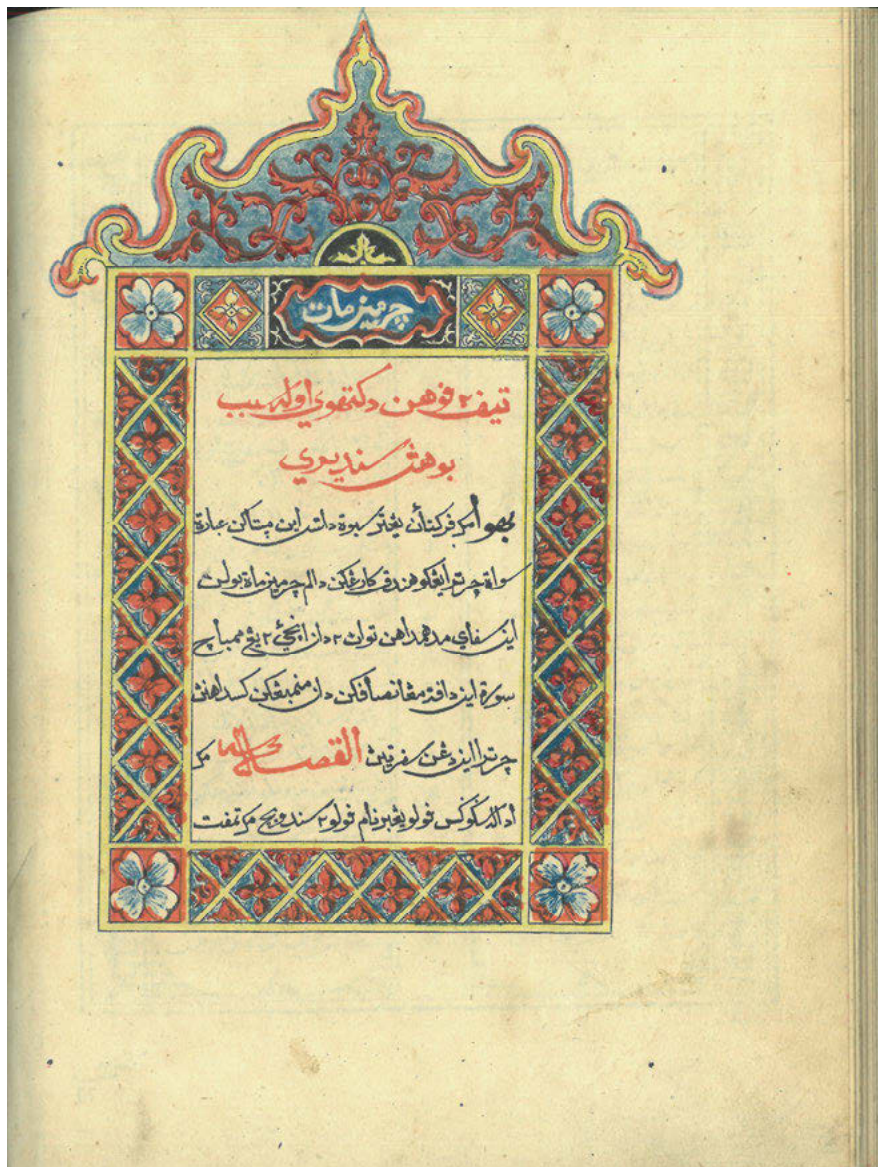 چرمين مات
تيف٢ فوهن دكتهوي اوله سبب
بوهڽ سنديري
بهوا مك فركتأن يڠتر سبوة داتس اين ميتاكن عبارة
سواة چرترا يڠكو هندق كارڠكن دالم چرمين مات بولن
اين سفاي مدهمداهن توان٢ دان انچئ٢ يڠ ممباچ
سورة اين دافت مڠانصافكن دان منمبڠكن كسداهنڽ
چرترا اين دڠن سفرتيڽ القصه مك
اداله سكوكس فولو يڠبرنام فولو٢ سندويچ مك تمفت